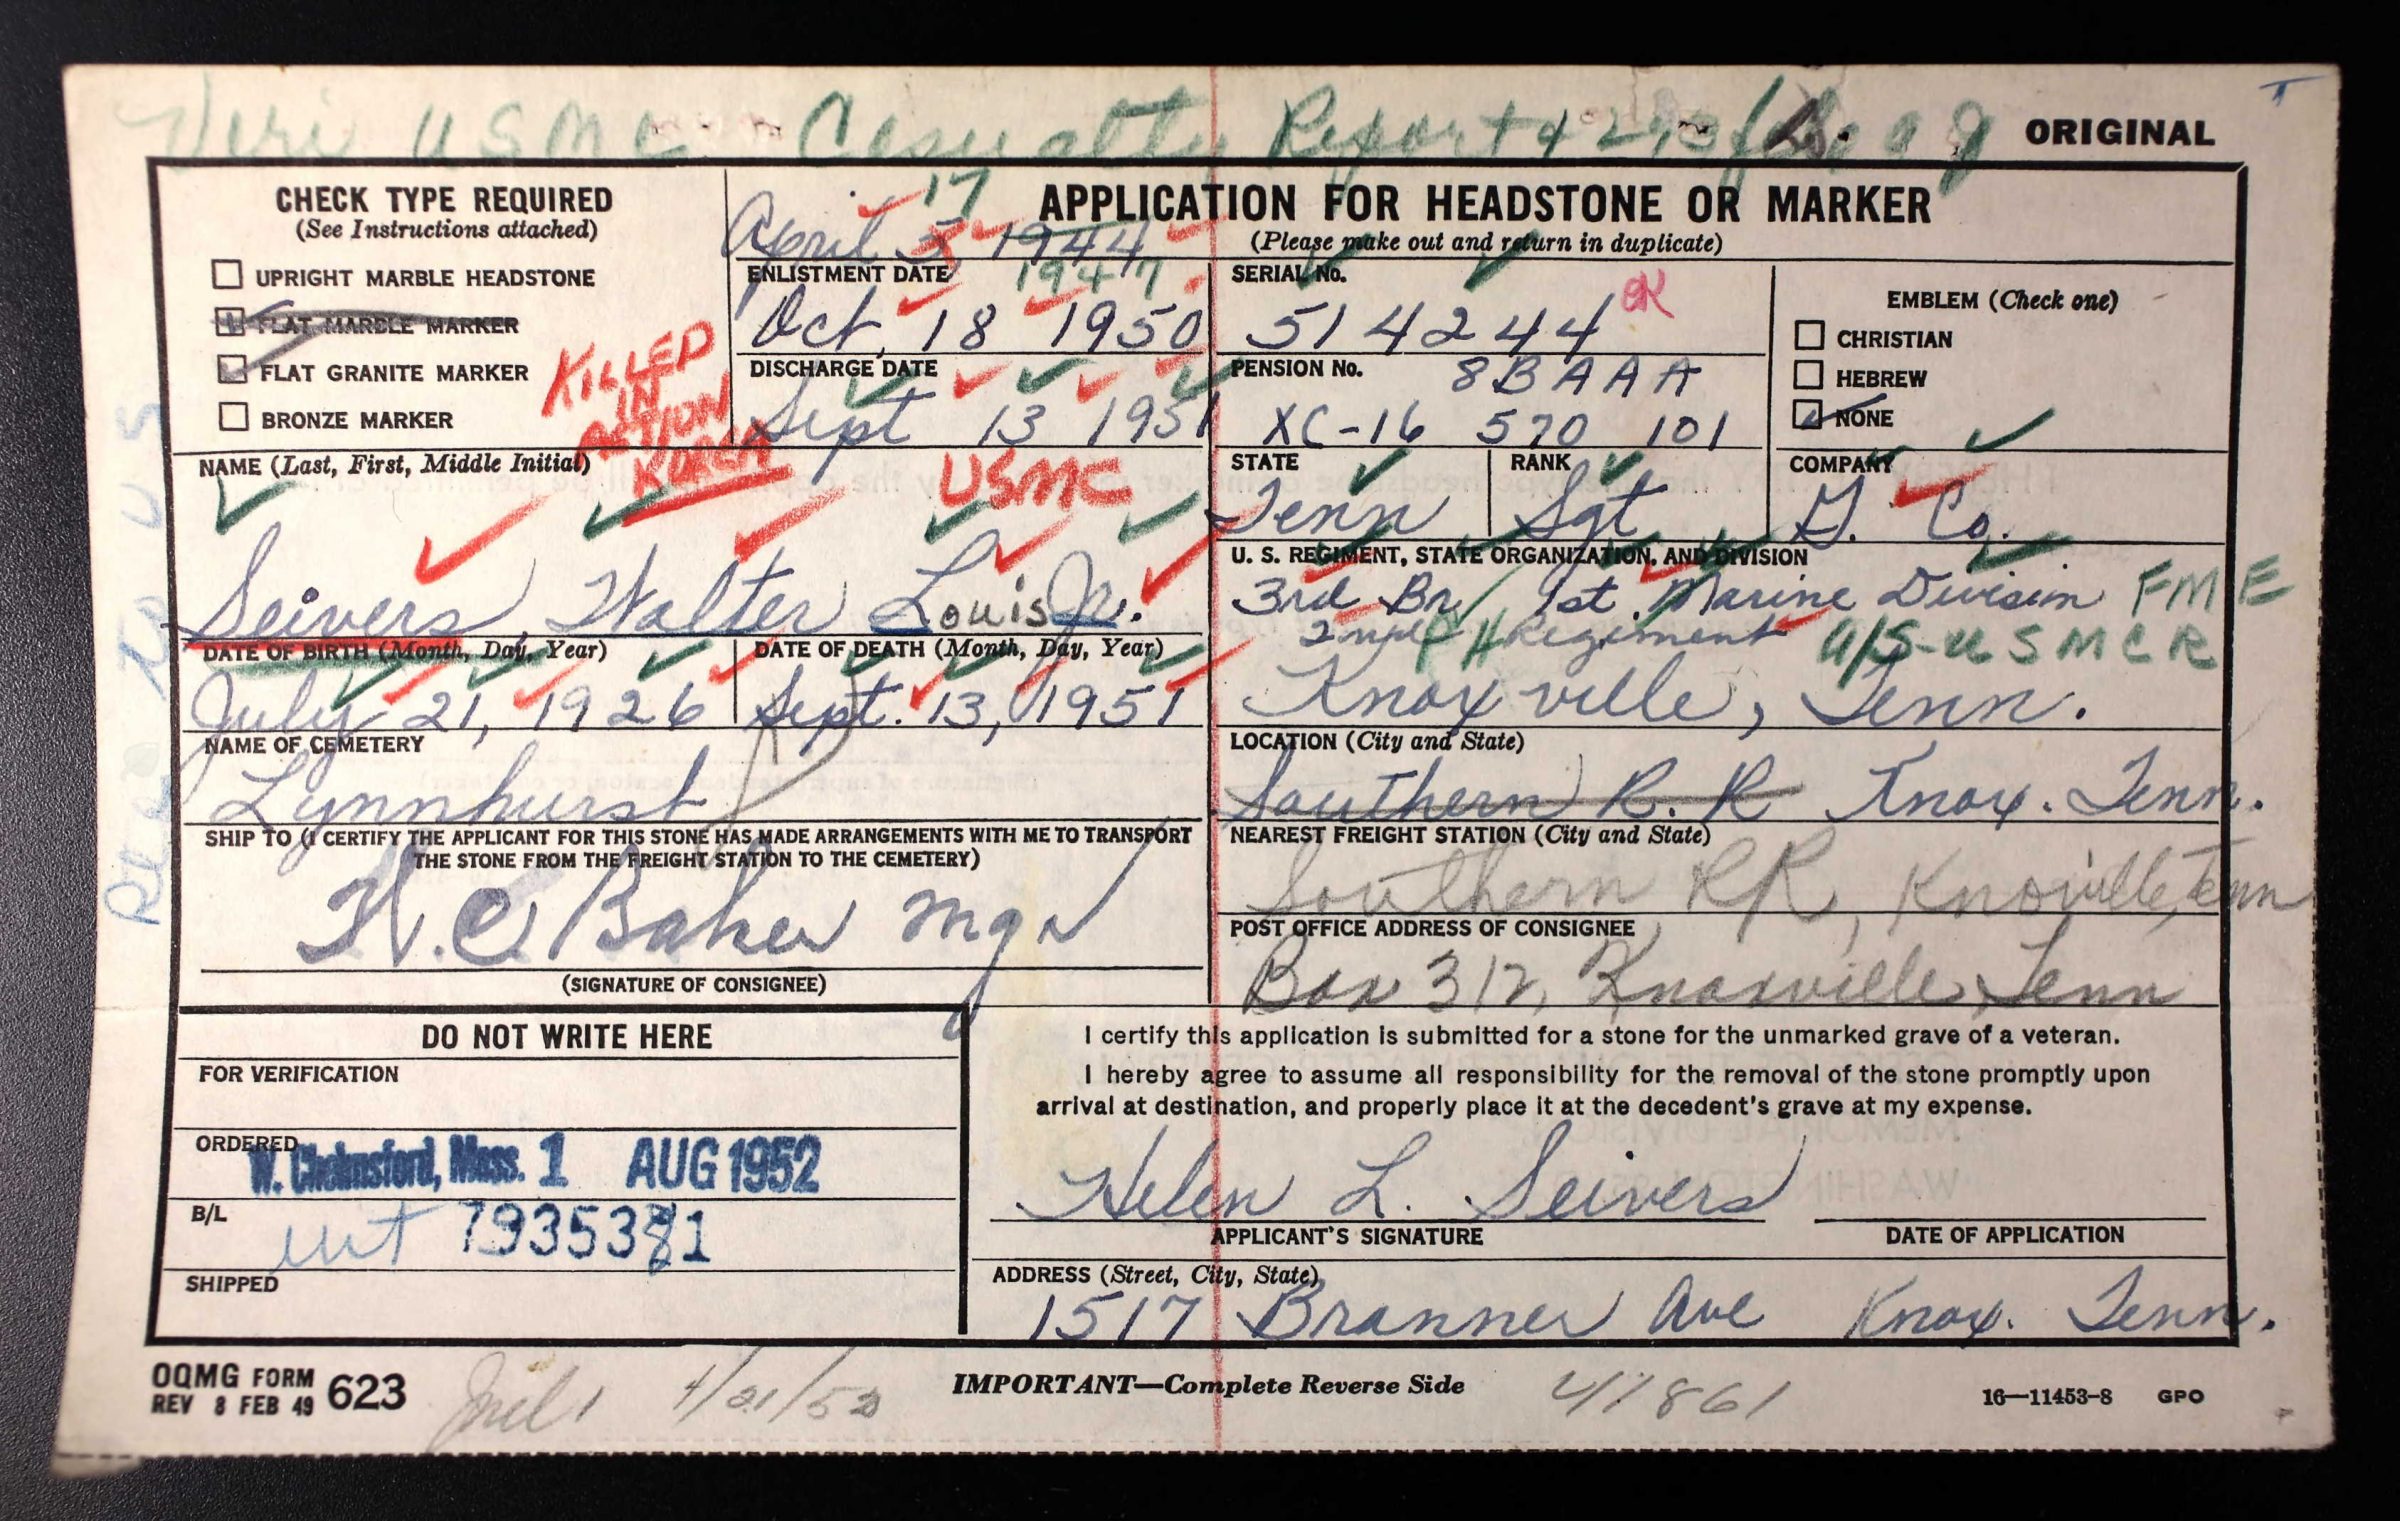 Veri USMC Casualty Report
ORIGINAL
CHECK TYPE REQUIRED
(See Instructions attached)
UPRIGHT MARBLE HEADSTONE
FLAT MARBLE MARKER
FLAT GRANITE MARKER
BRONZE MARKER
KILLED
IN
ACTION
KOREA
17
April 5 1944
ENLISTMENT DATE
1947
Oct, 18 1950
DISCHARGE DATE
Sept 13 1951
APPLICATION FOR HEADSTONE OR MARKER
(Please make out and return in duplicate)
SERIAL No.
514244 OK
PENSION No.
8BAAA
XC-16 570 101
EMBLEM (Check one)
CHRISTIAN
HEBREW
NONE
NAME (Last, First, Middle Initial)
USMC
Seivers, Walter Louis Jr.
STATE
Tenn
RANK
Sgt
COMPANY
G. Co.
U. S. REGIMENT, STATE ORGANIZATION, AND DIVISION
3rd Bn 1st Marine Division FMF
PH Regiment U/S-USMCR
DATE OF BIRTH (Month, Day, Year)
July 21, 1926
DATE OF DEATH (Month, Day, Year)
Sept. 13, 1951
Knoxville, Tenn.
NAME OF CEMETERY
Lynnhurst
LOCATION (City and State)
Southern R. R Knox. Tenn.
SHIP TO (I CERTIFY THE APPLICANT FOR THIS STONE HAS MADE ARRANGEMENTS WITH ME TO TRANSPORT
THE STONE FROM THE FREIGHT STATION TO THE CEMETERY)
NEAREST FREIGHT STATION (City and State)
Southern RR, Knoxville, Tenn
H. C. Baker mgr
(SIGNATURE OF CONSIGNEE)
POST OFFICE ADDRESS OF CONSIGNEE
Box 312, Knoxville, Tenn
DO NOT WRITE HERE
FOR VERIFICATION
ORDERED
W. Chelmsford, Mass. 1 AUG 1952
B/L
7935381
SHIPPED
I certify this application is submitted for a stone for the unmarked grave of a veteran.
I hereby agree to assume all responsibility for the removal of the stone promptly upon
arrival at destination, and properly place it at the decedent's grave at my expense.
Helen L. Seivers
APPLICANT'S SIGNATURE
DATE OF APPLICATION
ADDRESS (Street, City, State)
1517 Branner Ave Knox. Tenn.
OQMG FORM
REV 8 FEB 49
623
IMPORTANT—Complete Reverse Side
41861
16—11453-8 GPO